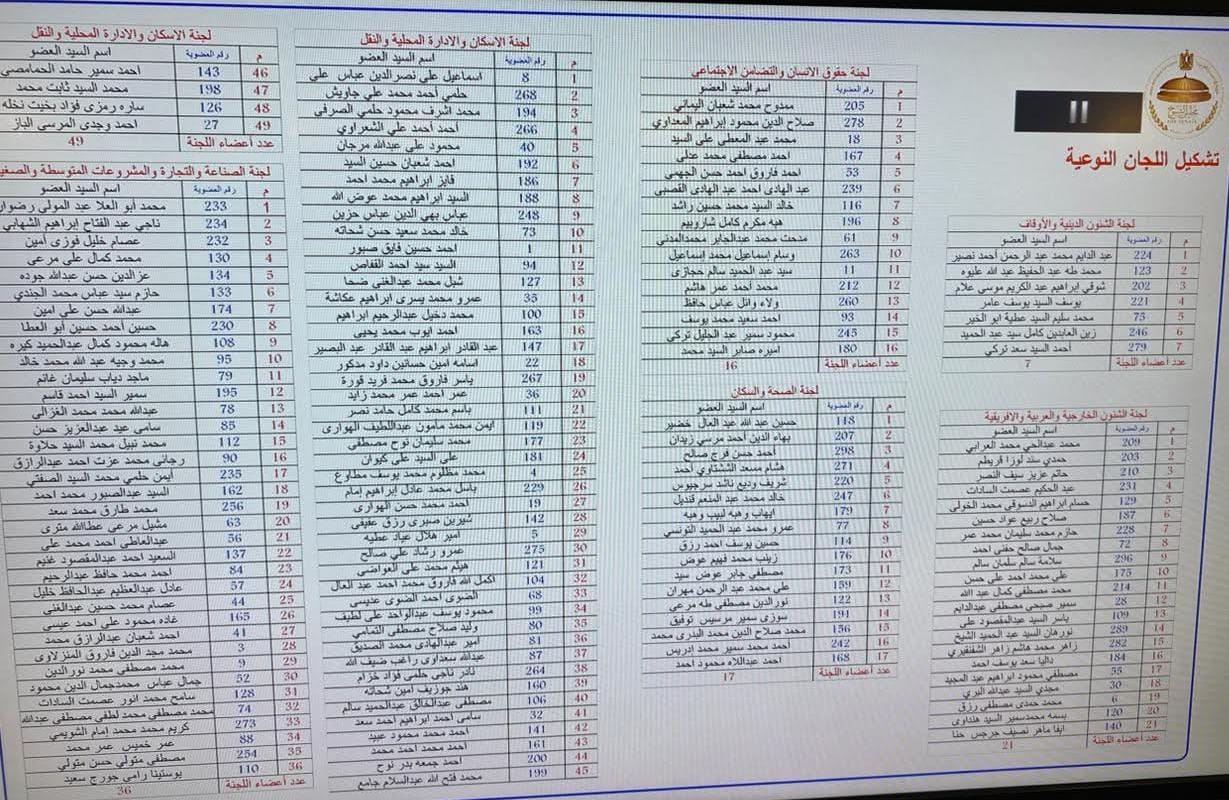 تشكيل اللجان النوعية
لجنة الشئون الدينية والأوقاف
م رقم العضوية اسم السيد العضو
1 224 عبد الدايم محمد عبد الرحمن أحمد نصير
2 123 محمد طه عبد الحفيظ عبد الله عليوه
3 202 شوقي إبراهيم عبد الكريم موسى علام
4 221 يوسف السيد يوسف عامر
5 75 محمد سليم السيد عطية ابو الخير
6 246 زين العابدين كامل سيد عبد الحميد
7 279 أحمد السيد سعد تركي
عدد أعضاء اللجنة 7
لجنة الشئون الخارجية والعربية والافريقية
م رقم العضوية اسم السيد العضو
1 209 محمد عبدالحي محمد العرابي
2 203 حمدي سند لوزا قريطم
3 210 حاتم عزيز سيف النصر
4 231 عبد الحكيم عصمت السادات
5 129 حسام ابراهيم الدسوقي محمد الخولى
6 187 صلاح ربيع عواد حسين
7 228 حازم محمد سليمان محمد عمر
8 72 جمال صالح حفنى احمد
9 296 سلامة سالم سلمان سالم
10 175 على محمد احمد على حسن
11 214 محمد مصطفى كمال عبد الله
12 28 سمير صبحي مصطفى عبدالدايم
13 109 ياسر السيد عبدالمقصود على
14 289 نورهان السيد عبد الحميد الشيخ
15 282 زاهر محمد هاشم زاهر الشقنقيري
16 184 داليا سعد يوسف احمد
17 55 مصطفى محمود ابراهيم عبد المجيد
18 30 مجدي السيد عبدالله البري
19 6 محمد حمدى مصطفى رزق
20 120 بسمه محمدسمير السيد هنداوى
21 140 ايفا ماهر نصيف جرجس حنا
عدد أعضاء اللجنة 21
لجنة حقوق الانسان والتضامن الاجتماعي
م رقم العضوية اسم السيد العضو
1 205 ممدوح محمد شعبان اليماني
2 278 صلاح الدين محمود إبراهيم المعداوي
3 18 محمد عبد المعطى على السيد
4 167 احمد مصطفى محمد عدلى
5 53 احمد فاروق احمد حسن الجهمى
6 239 عبد الهادى احمد عبد الهادى القصبى
7 116 خالد السيد محمد حسين راشد
8 196 هبه مكرم كامل شاروبيم
9 61 مدحت محمد عبدالجابر محمدالمدنى
10 263 وسام إسماعيل محمد إسماعيل
11 11 سيد عبد الحميد سالم حجازى
12 212 محمد أحمد عمر هاشم
13 260 ولاء وائل عباس حافظ
14 93 احمد سعيد محمد يوسف
15 245 محمود سمير عبد الجليل تركي
16 180 اميره صابر السيد محمد
عدد أعضاء اللجنة 16
لجنة الصحة والسكان
م رقم العضوية اسم السيد العضو
1 118 حسين عبد الله عبد العال خضير
2 207 بهاء الدين أحمد مرسي زيدان
3 298 أحمد حسن فرج صالح
4 271 هشام مسعد الششتاوي أحمد
5 220 شريف وديع ناشد سرجيوس
6 247 خالد محمد عبد المنعم قنديل
7 179 ايهاب وهبه لبيب وهبه
8 77 عمرو محمد عبد الحميد التونسي
9 114 حسين يوسف احمد رزق
10 176 زينب محمد فهيم عوض
11 173 مصطفى جابر عوض سيد
12 159 على محمد عبد الرحمن مهران
13 122 نورالدين مصطفى طه مرعى
14 191 سوزى سمير مرسيس توفيق
15 156 محمد صلاح الدين محمد البدرى محمد
16 242 أحمد محمد سمير محمد إدريس
17 168 احمد عبداللاه محمود احمد
عدد أعضاء اللجنة 17
لجنة الاسكان والادارة المحلية والنقل
م رقم العضوية اسم السيد العضو
1 8 اسماعيل على نصرالدين عباس على
2 268 حلمي أحمد محمد علي جاويش
3 194 محمد اشرف محمود حلمى الصرفى
4 266 أحمد أحمد علي الشعراوي
5 40 محمود على عبدالله مرجان
6 192 احمد شعبان حسين السيد
7 186 فايز ابراهيم محمد احمد
8 188 السيد ابراهيم محمد عوض الله
9 248 عباس بهي الدين عباس حزين
10 73 خالد محمد سعيد حسن شحاته
11 1 احمد حسين فايق صبور
12 94 السيد سيد احمد القفاص
13 127 شبل محمد عبدالغنى ضحا
14 35 عمرو محمد يسرى ابراهيم عكاشة
15 100 محمد دخيل عبدالرحيم ابراهيم
16 163 احمد ايوب محمد يحيى
17 147 عبد القادر ابراهيم عبد القادر عبد البصير
18 22 اسامه امين حسانين داود مدكور
19 267 ياسر فاروق محمد فريد قورة
20 36 عمر احمد عمر محمد زايد
21 111 باسم محمد كامل حامد نصر
22 119 ايمن محمد مامون عبداللطيف الهوارى
23 177 محمد سليمان نوح مصطفى
24 181 على السيد على كيوان
25 4 محمد مظلوم محمد يوسف مطاوع
26 229 باسل محمد عادل إبراهيم إمام
27 19 احمد محمد حسن الهوارى
28 142 شيرين صبرى رزق عفيفى
29 5 امير هلال عياد عطيه
30 275 عمرو رشاد علي صالح
31 121 هيثم محمد على العواضى
32 104 اكمل الله فاروق محمد احمد عبد العال
33 68 الضوى احمد الضوى عديسى
34 99 محمود يوسف عبدالواحد على لطيف
35 80 وليد صلاح مصطفى التمامي
36 81 امير عبدالهادى محمد الصديق
37 87 عبدالله سعداوى راغب ضيف الله
38 264 نادر ناجى حلمى فؤاد خزام
39 160 هند جوزيف امين شحاته
40 106 مصطفى عبدالخالق عبدالحميد سالم
41 32 سامى احمد ابراهيم احمد سعد
42 141 احمد محمد محمود عبيد
43 161 احمد محمد احمد محمد
44 200 احمد جمعه بدر نوح
45 199 محمد فتح الله عبدالسلام جامع
لجنة الاسكان والادارة المحلية والنقل
م رقم العضوية اسم السيد العضو
46 143 احمد سمير حامد الحمامصى
47 198 محمد السيد ثابت محمد
48 126 ساره رمزى فؤاد بخيت نخله
49 27 احمد وجدى المرسى الباز
عدد أعضاء اللجنة 49
لجنة الصناعة والتجارة والمشروعات المتوسطة والصغير
م رقم العضوية اسم السيد العضو
1 233 محمد أبو العلا عبد المولى رضوان
2 234 ناجي عبد الفتاح إبراهيم الشهابي
3 232 عصام خليل فوزى أمين
4 130 محمد كمال على مرعى
5 134 عزالدين حسن عبدالله جوده
6 133 حازم سيد عباس محمد الجندي
7 174 عبدالله حسن على امين
8 230 حسين أحمد حسين أبو العطا
9 108 هاله محمود كمال عبدالحميد كيره
10 95 محمد وجيه عبد الله محمد خالد
11 79 ماجد دياب سليمان غانم
12 195 سمير السيد احمد قاسم
13 78 عبدالله محمد محمد الغزالى
14 85 سامى عيد عبدالعزيز حسن
15 112 محمد نبيل محمد السيد حلاوة
16 90 رجائى محمد عزت احمد عبدالرازق
17 235 أيمن حلمي محمد السيد الصفتي
18 162 السيد عبدالصبور محمد احمد
19 256 محمد طارق محمد سعد
20 63 مشيل مرعى عطاالله مترى
21 56 عبدالعاطى احمد محمد على
22 137 السعيد احمد عبدالمقصود غنيم
23 84 احمد محمد حافظ عبدالرحيم
24 57 عادل عبدالعظيم عبدالحافظ خليل
25 44 عصام محمد حسين عبدالغنى
26 165 غاده محمود على احمد عيسى
27 41 احمد شعبان عبدالرازق محمد
28 3 محمد مجد الدين فاروق المنزلاوى
29 9 محمد مصطفى محمد نورالدين
30 52 جمال عباس محمدجمال الدين محمود
31 128 سامح محمد انور عصمت السادات
32 74 محمد مصطفى محمد لطفى مصطفى عبدالله
33 273 كريم محمد محمد إمام الشويمي
34 88 عمر خميس عمر محمد
35 254 مصطفى متولي حسن متولي
36 110 يوستينا رامى جورج سعيد
عدد أعضاء اللجنة 36